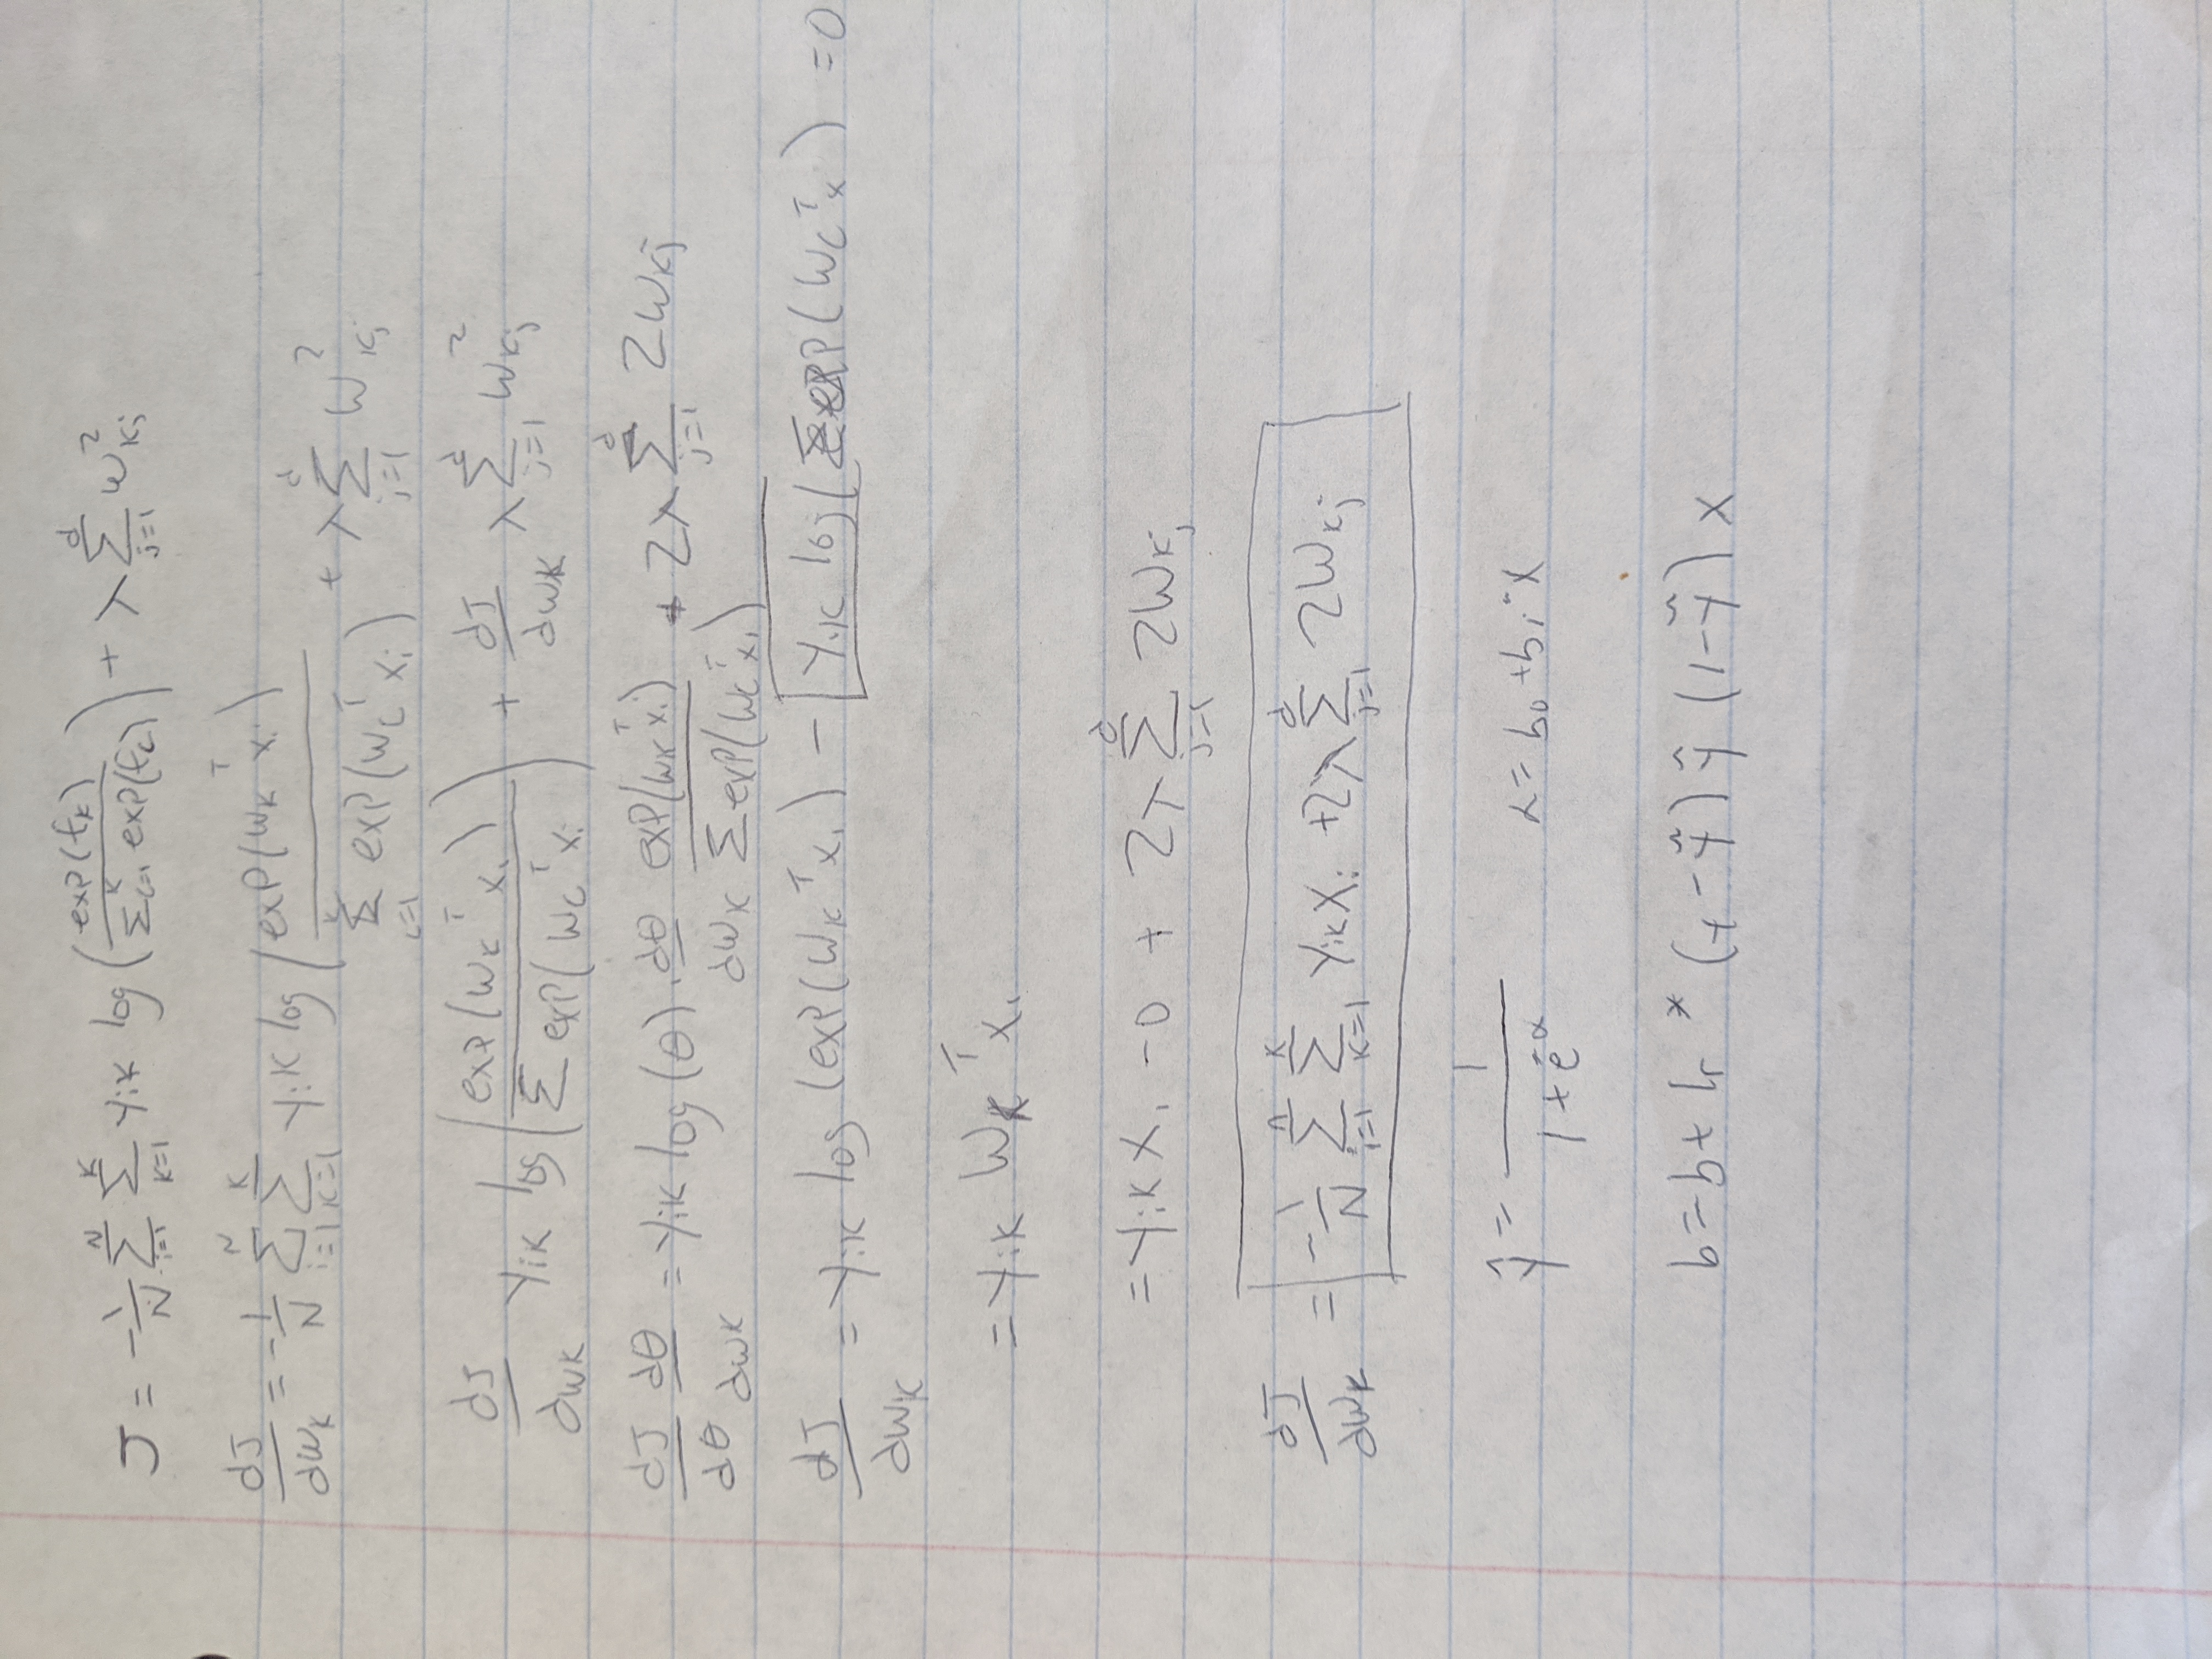 J = -1/N Σ_{i=1}^{N} Σ_{k=1}^{K} y_{ik} log( exp(f_k) / Σ_{c=1}^{K} exp(f_c) ) + λ Σ_{j=1}^{d} w_{kj}^2
dJ/dw_k = -1/N Σ_{i=1}^{N} Σ_{k=1}^{K} y_{ik} log( exp(w_k^T x_i) / Σ_{c=1}^{K} exp(w_c^T x_i) + λ Σ_{j=1}^{d} w_{kj}^2
dJ/dw_k y_{ik} log( exp(w_k^T x_i) / Σ exp(w_c^T x_i ) + dJ/dw_k λ Σ_{j=1}^{d} w_{kj}^2
dJ/dθ dθ/dw_k = y_{ik} log(θ) · dθ/dw_k exp(w_k^T x_i) / Σ exp(w_c^T x_i) + 2λ Σ_{j=1}^{d} 2w_{kj}
dJ/dw_k = y_{ik} log (exp(w_k^T x_i) - y_{ik} log( Σ exp(w_c^T x ) = 0
= y_{ik} w_k^T x_i
= y_{ik} x_i - 0 + 2λ Σ_{j=1}^{d} 2w_{kj}
dJ/dw_k = -1/N Σ_{i=1}^{n} Σ_{k=1}^{K} y_{ik} x_i + 2λ Σ_{j=1}^{d} 2w_{kj}
ŷ = 1 / 1 + e^{-α} α = b_0 + b_1 · x
b = b + lr * (y - ŷ) ŷ (1 - ŷ) x